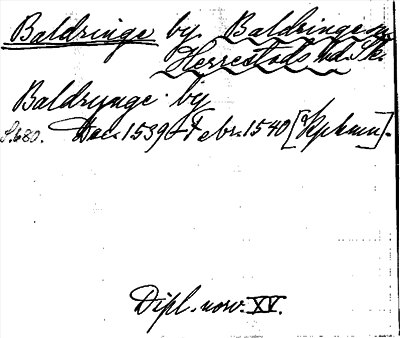 Baldringe by Baldringe sn
Herrestads hd. Sk.
Baldrynge by
S. 680. Dec. 1539-Febr. 1540 [Kphmn].
Dipl. norv. XV.